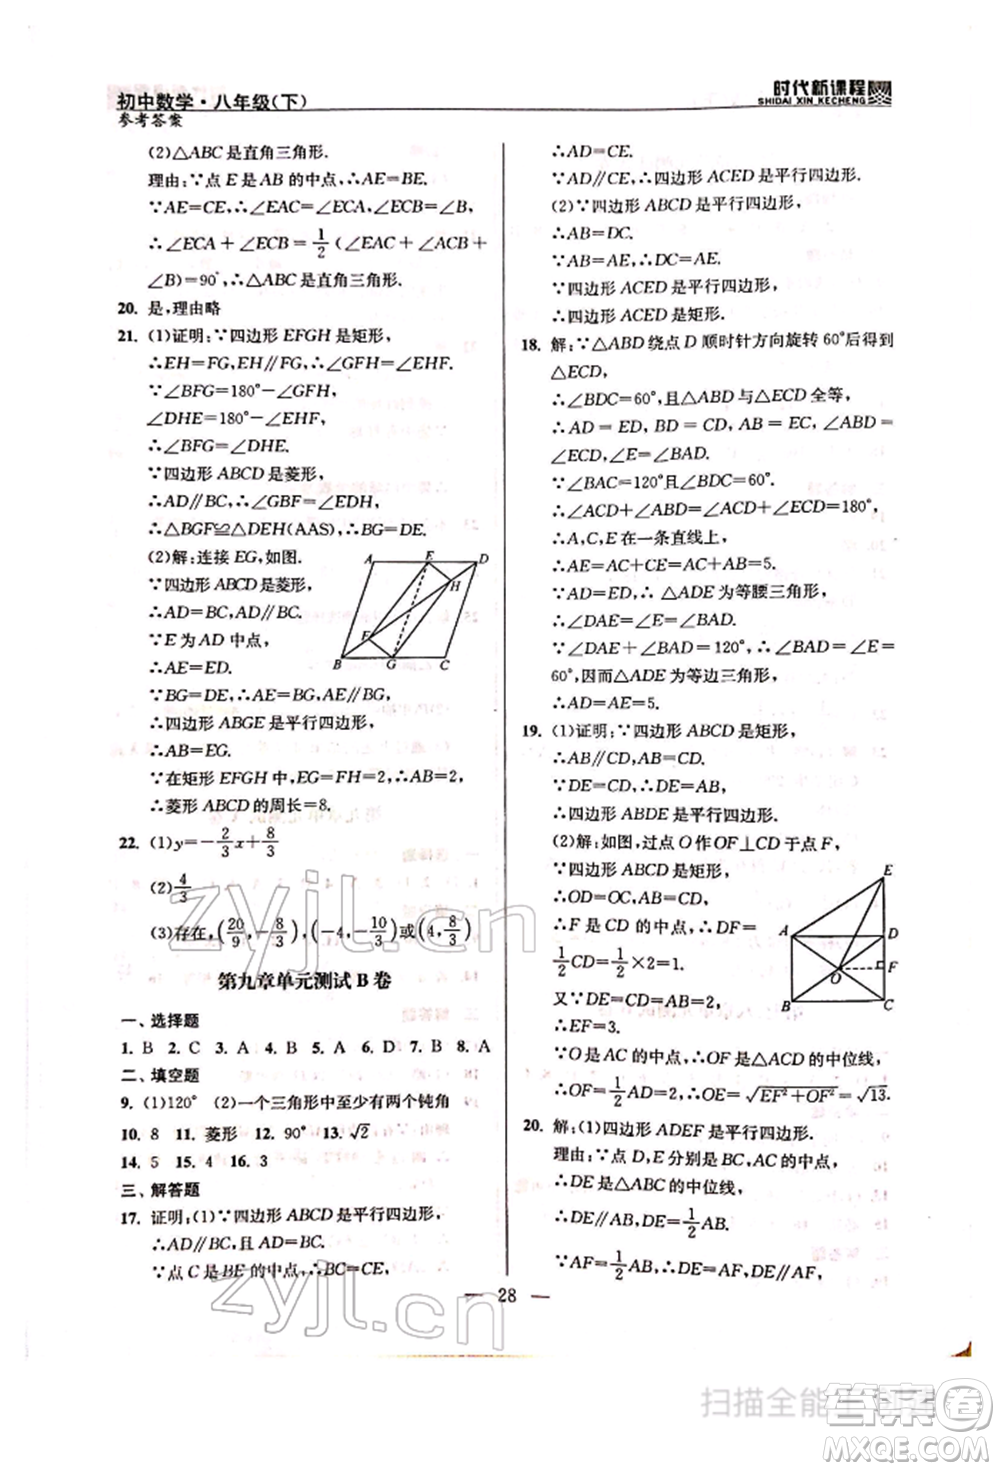 初中数学·八年级(下)
参考答案
时代新课程
SHIDAI XIN KECHENG
(2)△ABC是直角三角形.
理由:∵点E是AB的中点,∴AE=BE.
∵AE=CE,∴∠EAC=∠ECA,∠ECB=∠B,
∴∠ECA+∠ECB=1/2(∠EAC+∠ACB+
∠B)=90°,∴△ABC是直角三角形.
20. 是,理由略
21. (1)证明:∵四边形EFGH是矩形,
∴EH=FG,EH∥FG,∴∠GFH=∠EHF.
∵∠BFG=180°-∠GFH,
∠DHE=180°-∠EHF,
∴∠BFG=∠DHE.
∵四边形ABCD是菱形,
∴AD∥BC,∴∠GBF=∠EDH,
∴△BGF≌△DEH(AAS),∴BG=DE.
(2)解:连接EG,如图.
∵四边形ABCD是菱形,
∴AD=BC,AD∥BC.
∵E为AD中点,
∴AE=ED.
∵BG=DE,∴AE=BG,
∴四边形ABGE是平行四边形,
∴AB=EG.
∵在矩形EFGH中,EG=FH=2,∴AB=2,
∴菱形ABCD的周长=8.
A E D
H
F
B G C
22. (1)y=-2/3x+8/3
(2)4/3
(3)存在,(20/9,-8/3),(-4,-10/3)或(4,8/3)
第九章单元测试B卷
一、选择题
1. B 2. C 3. A 4. B 5. A 6. D 7. B 8. A
二、填空题
9. (1)120° (2)一个三角形中至少有两个钝角
10. 8 11. 菱形 12. 90° 13. √2
14. 5 15. 4 16. 3
三、解答题
17. 证明:(1)∵四边形ABCD是平行四边形,
∴AD∥BC,AD=BC.
∵点C是BE的中点,∴BC=CE,
∴AD=CE.
∵AD∥CE,∴四边形ACED是平行四边形.
(2)∵四边形ABCD是平行四边形,
∴AB=DC.
∵AB=AE,∴DC=AE.
∵四边形ACED是平行四边形,
∴四边形ACED是矩形.
18. 解:∵△ABD绕点D顺时针方向旋转60°后得到
△ECD,
∴∠BDC=60°,且△ABD与△ECD全等,
∴AD=ED,BD=CD,AB=CE=2,
∠BDC=60°,∠E=∠BAD.
∵∠BAC=120°且∠BDC=60°.
∴∠ACD+∠ABD=∠ACD+∠ECD=180°,
∴A,C,E在一条直线上,
∴AE=AC+CE=AC+AB=5.
∵AD=ED,∴△ADE为等腰三角形,
∴∠DAE=∠E=∠BAD.
∵∠DAE+∠BAD=120°,∴∠BAD=∠E=
60°,因而△ADE为等边三角形,
∴AD=AE=5.
19. (1)证明:∵四边形ABCD是矩形,
∴AB∥CD,AB=CD.
∵DE=CD,∴DE=AB,
∴四边形ABDE是平行四边形.
(2)解:如图,过点O作OF⊥CD于点F,
∵四边形ABCD是矩形,
∴OD=OC,AB=CD,
∴F是CD的中点,∴DF=
1/2CD=1/2×2=1.
又∵DE=CD=AB=2,
∴EF=3.
∵O是AC的中点,∴OF是△ACD的中位线,
∴OF=1/2AD=2,∴OE=√EF²+OF²=√13.
E
A D
O F
B C
20. 解:(1)四边形ADEF是平行四边形.
理由:∵点D,E分别是BC,AC的中点,
∴DE是△ABC的中位线,
∴DE∥AB,DE=1/2AB.
∵AF=1/2AB,∴DE=AF,
— 28 —
zyjl.cn
zyjl.cn
扫描全能王 创建
答案卷
MXQE.COM